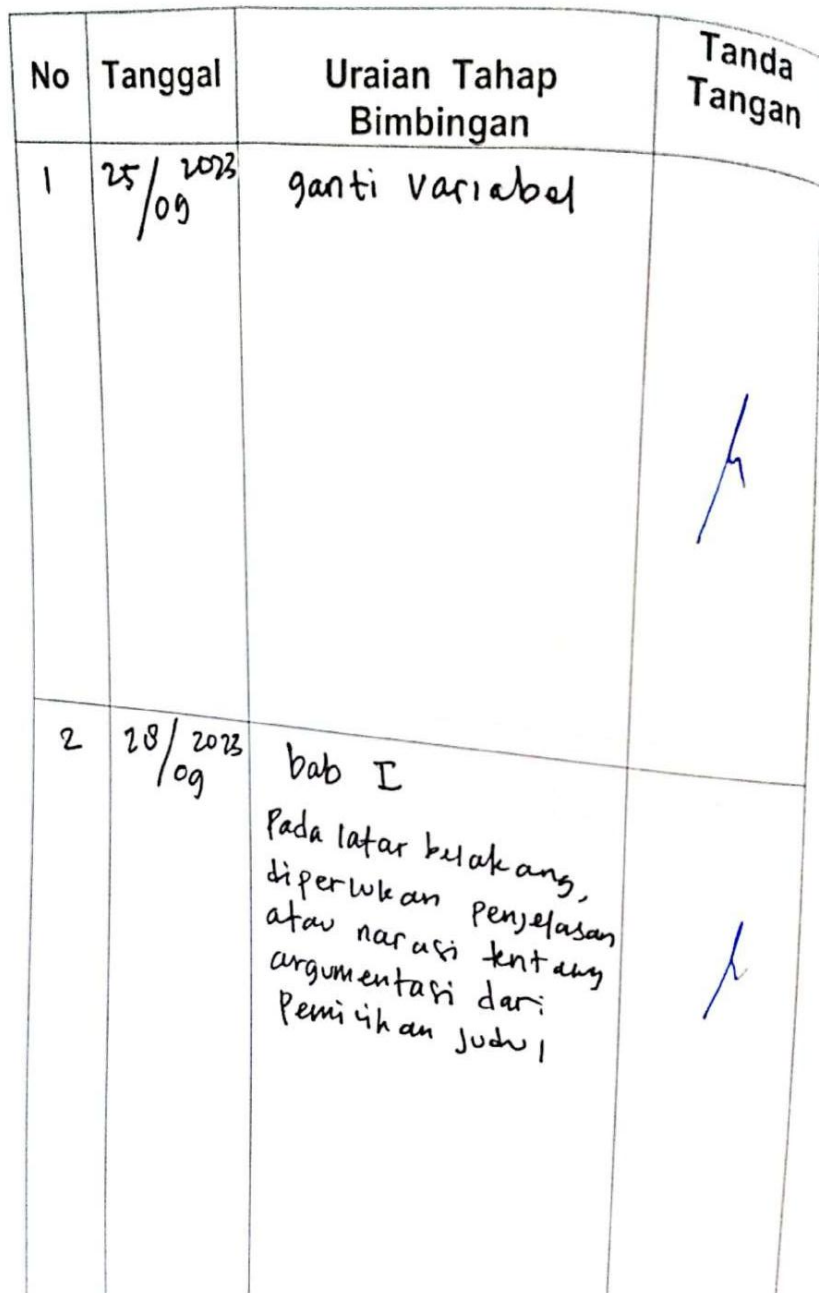 No Tanggal Uraian Tahap Bimbingan Tanda Tangan
1 25/09 2023 ganti variabel
2 28/09 2023 bab I
Pada latar belakang,
diperlukan penjelasan
atau narasi tentang
argumentasi dari
Pemilihan Judul